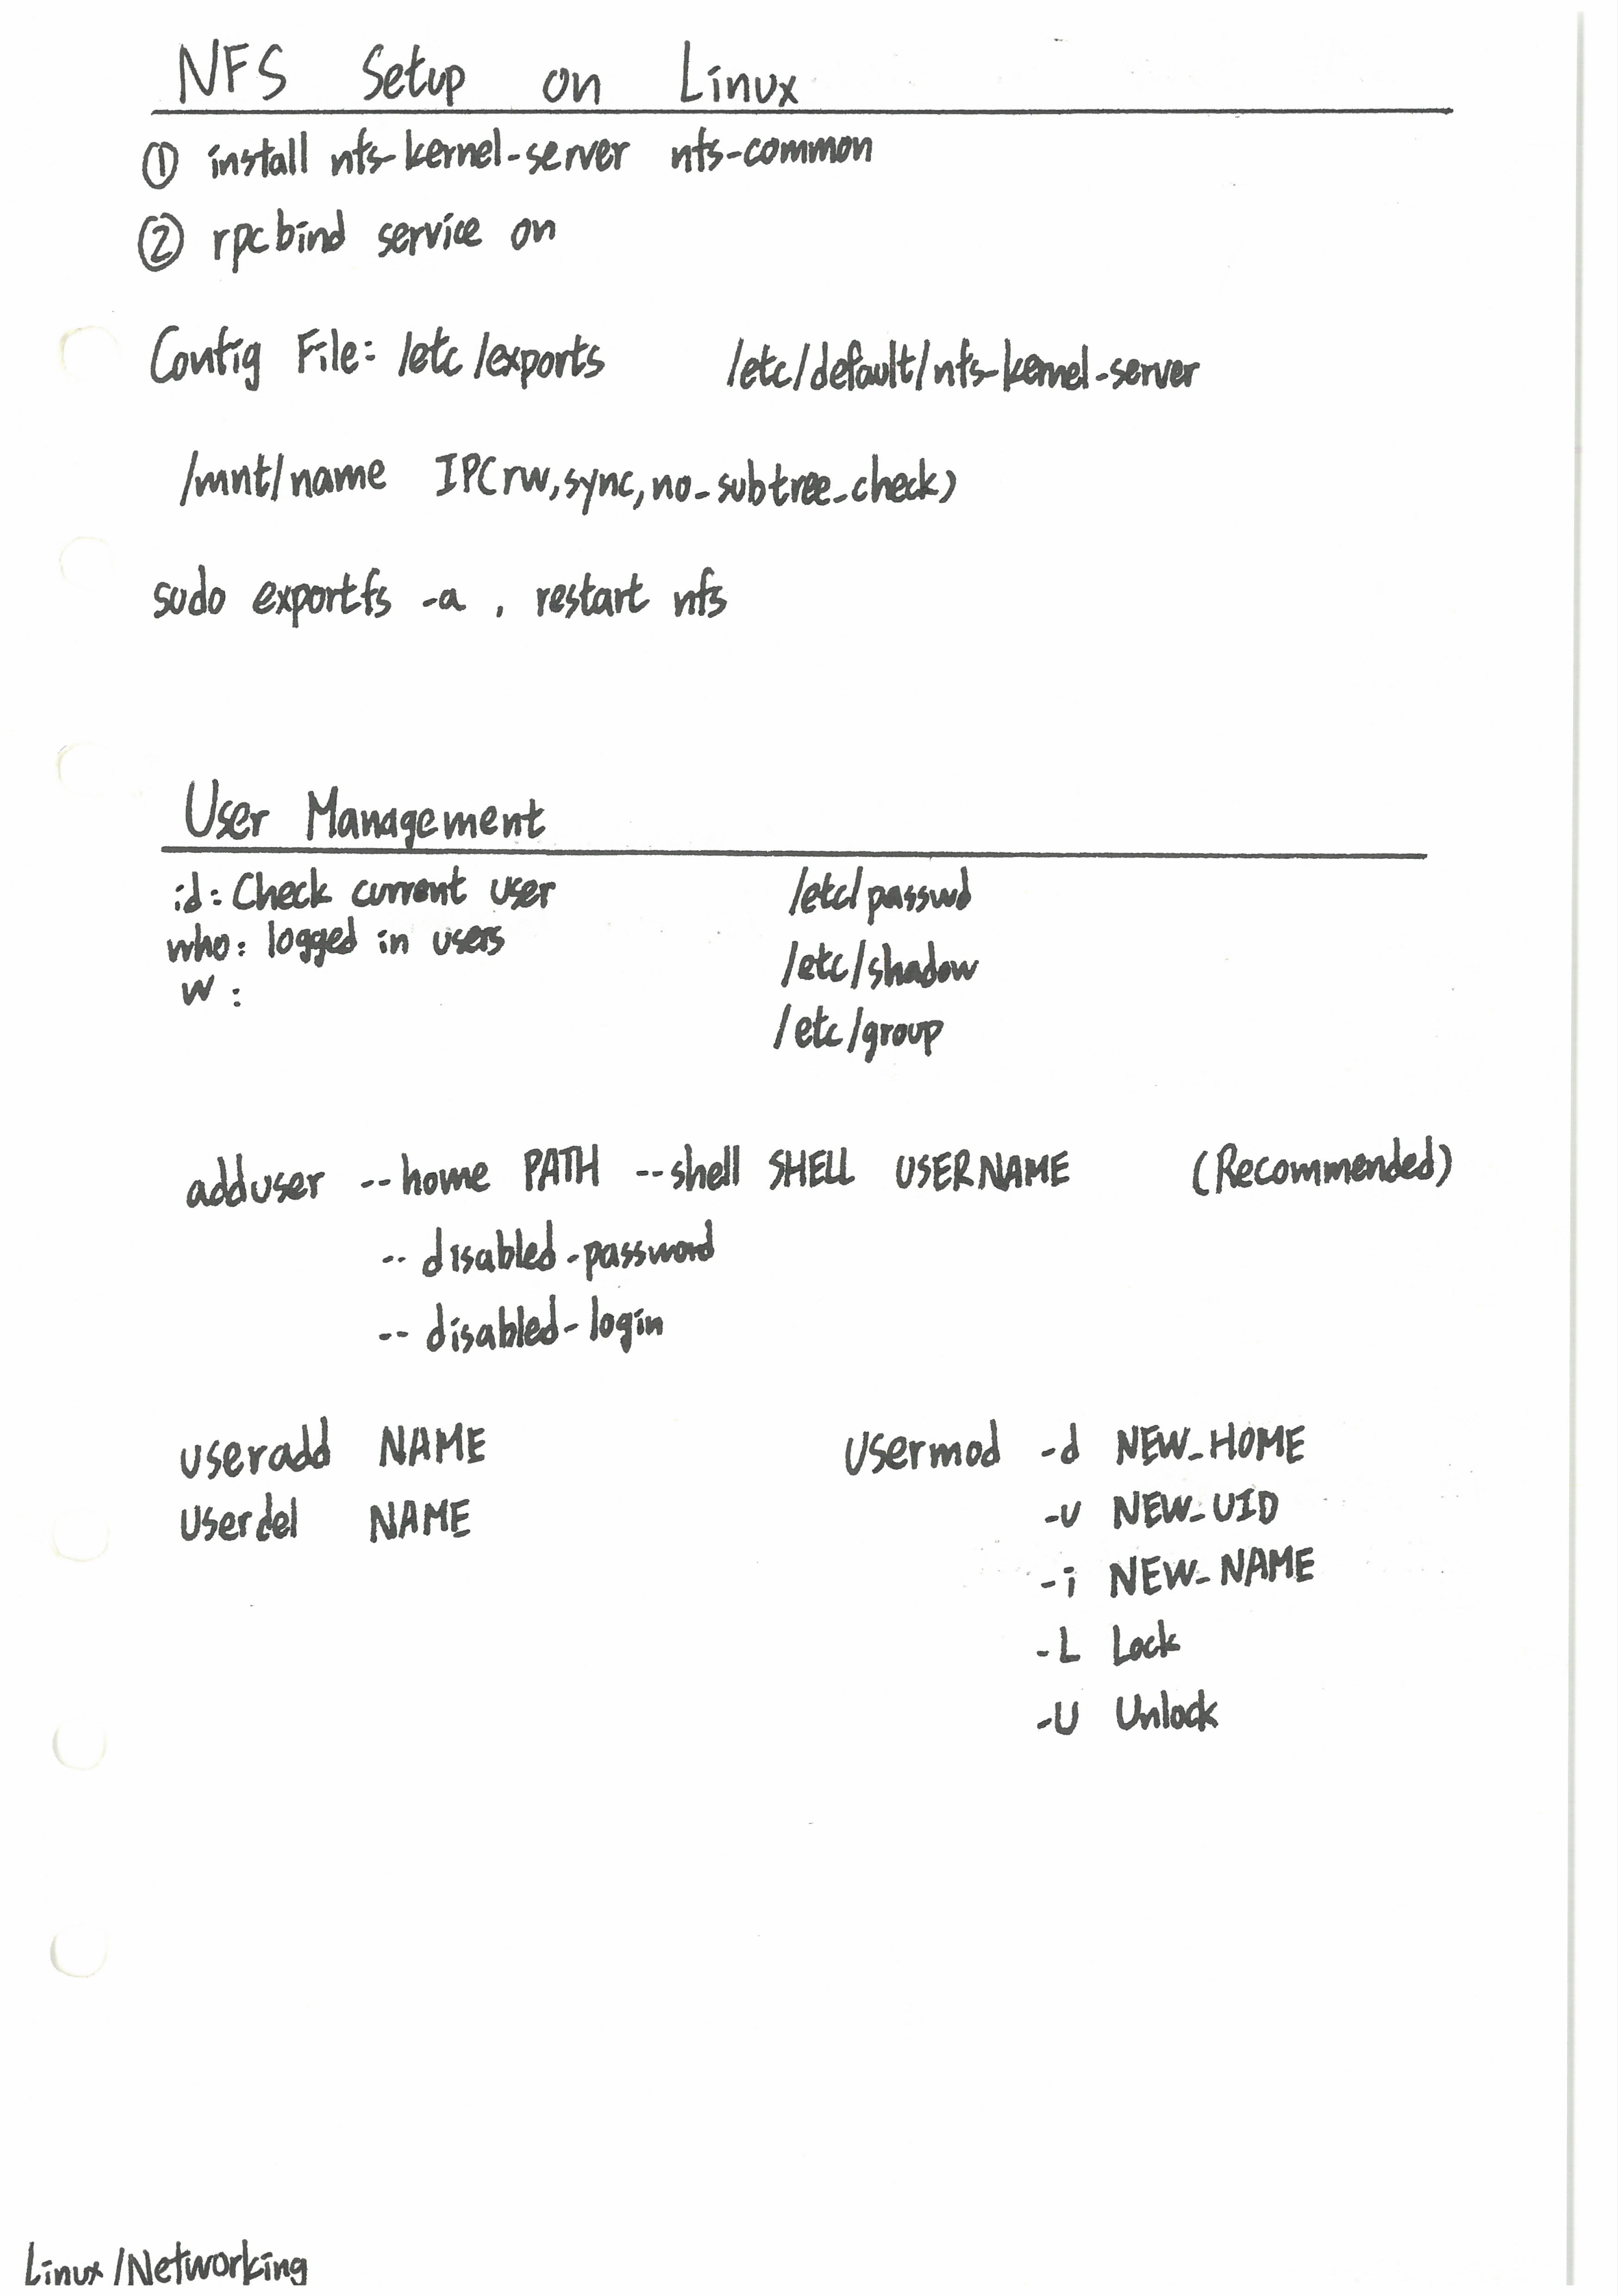 NFS Setup on Linux
① install nfs-kernel-server nfs-common
② rpcbind service on
Config File: /etc/exports /etc/default/nfs-kernel-server
/mnt/name IP(rw,sync,no_subtree_check)
sudo exportfs -a , restart nfs
User Management
id: Check current user
who: logged in users
w :
/etc/passwd
/etc/shadow
/etc/group
adduser --home PATH --shell SHELL USERNAME (Recommended)
-- disabled-password
-- disabled-login
useradd NAME
userdel NAME
usermod -d NEW_HOME
-u NEW_UID
-i NEW_NAME
-L Lock
-U Unlock
Linux/Networking